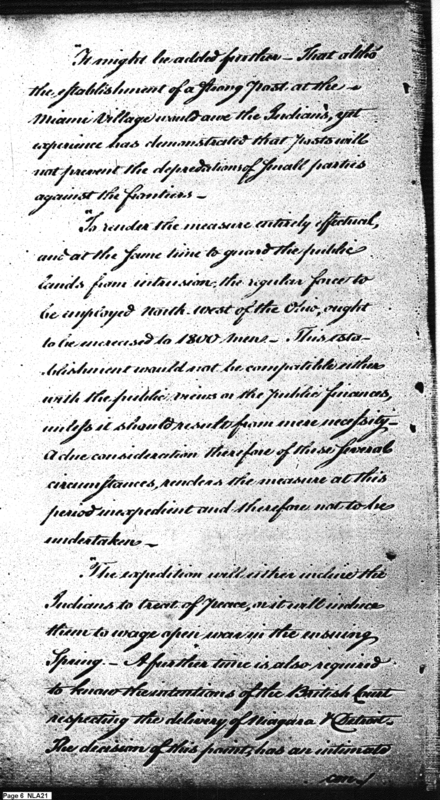 "It might be added further - That altho'
the establishment of a strong Post at the
Miami Village would awe the Indians, yet
experience has demonstrated that Posts will
not prevent the depredations of small parties
against the frontiers -
"To render the measure entirely effectual,
and at the same time to guard the public
lands from intrusion, the regular force to
be employed North west of the Ohio, ought
to be increased to 1800 Men - This esta-
blishment would not be compatible either
with the public views or the public finances,
unless it should result from mere necessity -
A due consideration therefore of these several
circumstances, renders the measure at this
period inexpedient and therefore not to be
undertaken -
"The expedition will either incline the
Indians to treat of Peace, or it will induce
them to wage open war in the ensuing
Spring - A further time is also required
to know the intentions of the British Court
respecting the delivery of Niagara & Detroit.
The decision of this point, has an intimate
con
Page 6 NLA21